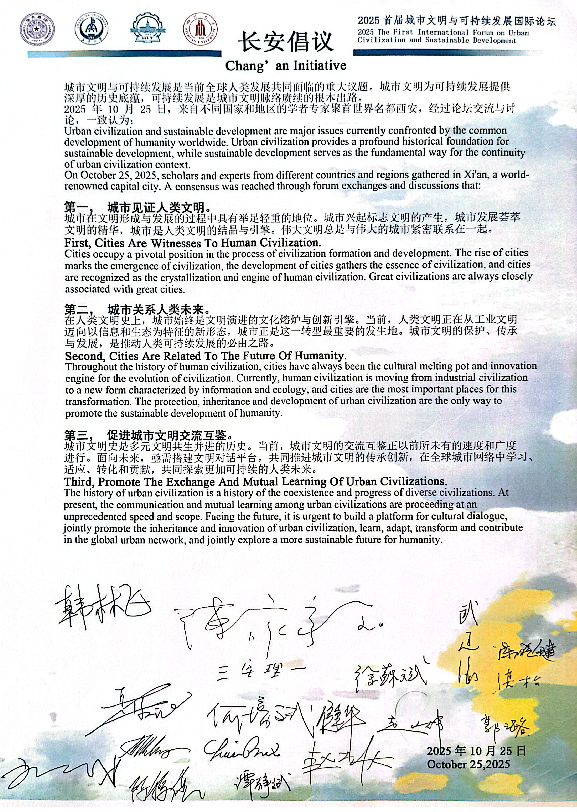 2025 首届城市文明与可持续发展国际论坛
2025 The First International Forum on Urban
Civilization and Sustainable Development
长安倡议
Chang' an Initiative
城市文明与可持续发展是当前全球人类发展共同面临的重大议题，城市文明为可持续发展提供
深厚的历史底蕴，可持续发展是城市文明脉络赓续的根本出路。
2025 年 10 月 25 日，来自不同国家和地区的学者专家聚首世界名都西安，经过论坛交流与讨
论，一致认为：
Urban civilization and sustainable development are major issues currently confronted by the common
development of humanity worldwide. Urban civilization provides a profound historical foundation for
sustainable development, while sustainable development serves as the fundamental way for the continuity
of urban civilization context.
On October 25, 2025, scholars and experts from different countries and regions gathered in Xi'an, a world-
renowned capital city. A consensus was reached through forum exchanges and discussions that:
第一， 城市见证人类文明。
城市在文明形成与发展的过程中具有举足轻重的地位。城市兴起标志文明的产生，城市发展荟萃
文明的精华，城市是人类文明的结晶与引擎，伟大文明总是与伟大的城市紧密联系在一起。
First, Cities Are Witnesses To Human Civilization.
Cities occupy a pivotal position in the process of civilization formation and development. The rise of cities
marks the emergence of civilization, the development of cities gathers the essence of civilization, and cities
are recognized as the crystallization and engine of human civilization. Great civilizations are always closely
associated with great cities.
第二， 城市关系人类未来。
在人类文明史上，城市始终是文明演进的文化熔炉与创新引擎。当前，人类文明正在从工业文明
迈向以信息和生态为特征的新形态，城市正是这一转型最重要的发生地。城市文明的保护、传承
与发展，是推动人类可持续发展的必由之路。
Second, Cities Are Related To The Future Of Humanity.
Throughout the history of human civilization, cities have always been the cultural melting pot and innovation
engine for the evolution of civilization. Currently, human civilization is moving from industrial civilization
to a new form characterized by information and ecology, and cities are the most important places for this
transformation. The protection, inheritance and development of urban civilization are the only way to
promote the sustainable development of humanity.
第三， 促进城市文明交流互鉴。
城市文明史是多元文明共生并进的历史。当前，城市文明的交流互鉴正以前所未有的速度和广度
进行。面向未来，亟需搭建文明对话平台，共同推进城市文明的传承创新，在全球城市网络中学习、
适应、转化和贡献，共同探索更加可持续的人类未来。
Third, Promote The Exchange And Mutual Learning Of Urban Civilizations.
The history of urban civilization is a history of the coexistence and progress of diverse civilizations. At
present, the communication and mutual learning among urban civilizations are proceeding at an
unprecedented speed and scope. Facing the future, it is urgent to build a platform for cultural dialogue,
jointly promote the inheritance and innovation of urban civilization, learn, adapt, transform and contribute
in the global urban network, and jointly explore a more sustainable future for humanity.
韩林飞
三宅理一
徐苏斌
2025 年 10 月 25 日
October 25,2025